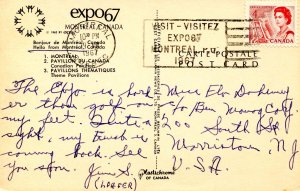 expo67
MONTREAL/CANADA
Bonjour de Montréal, Canada
Hello from Montréal, Canada
1. MONTREAL
2. PAVILLON DU CANADA
Canadian Pavilion
3. PAVILLONS THÉMATIQUES
Theme Pavilions
MONTREAL
PM
1967
VISIT - VISITEZ
EXPO67
MONTREAL
1967
CARTE POSTALE
POST CARD
CANADA
The Expo is hard
er than golf on
my feet. Quite a
sight, my truck is
coming back. See
you soon. Jim S.
(LOAFER)
Miss Flo Doheny
c/o Ben
200 South St
Morristown, N J
U.S.A.
Plastichrome
OF CANADA